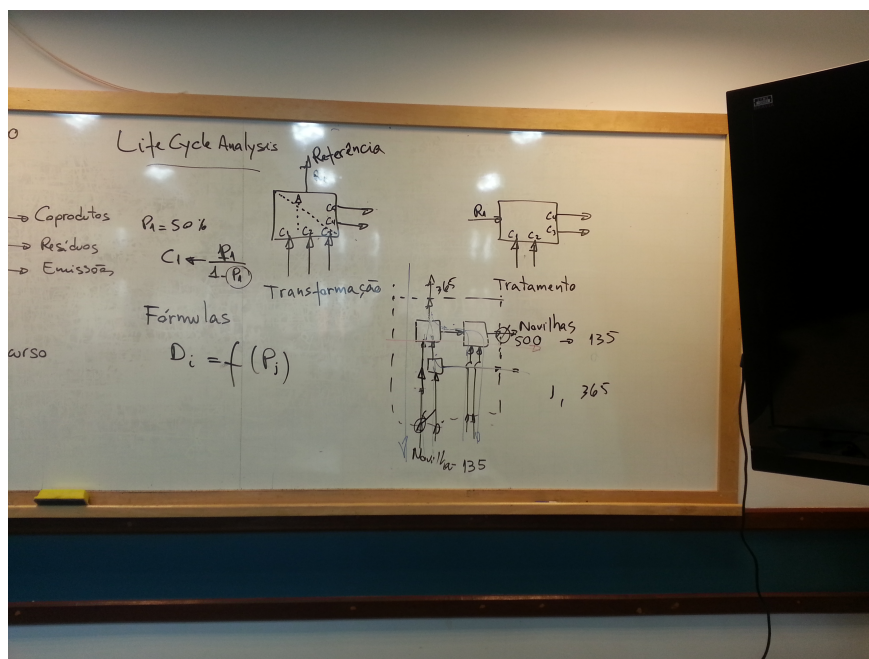 Life Cycle Analysis
Referência
→ Coprodutos
→ Resíduos
→ Emissões
P₁ = 50%
C₁ C₂ C₃
C₄
Transformação
R₁
C₁ C₂
C₄
C₃
Tratamento
Fórmulas
Dᵢ = f(Pⱼ)
curso
365
Novilhas
500 → 135
1, 365
Novilha 135